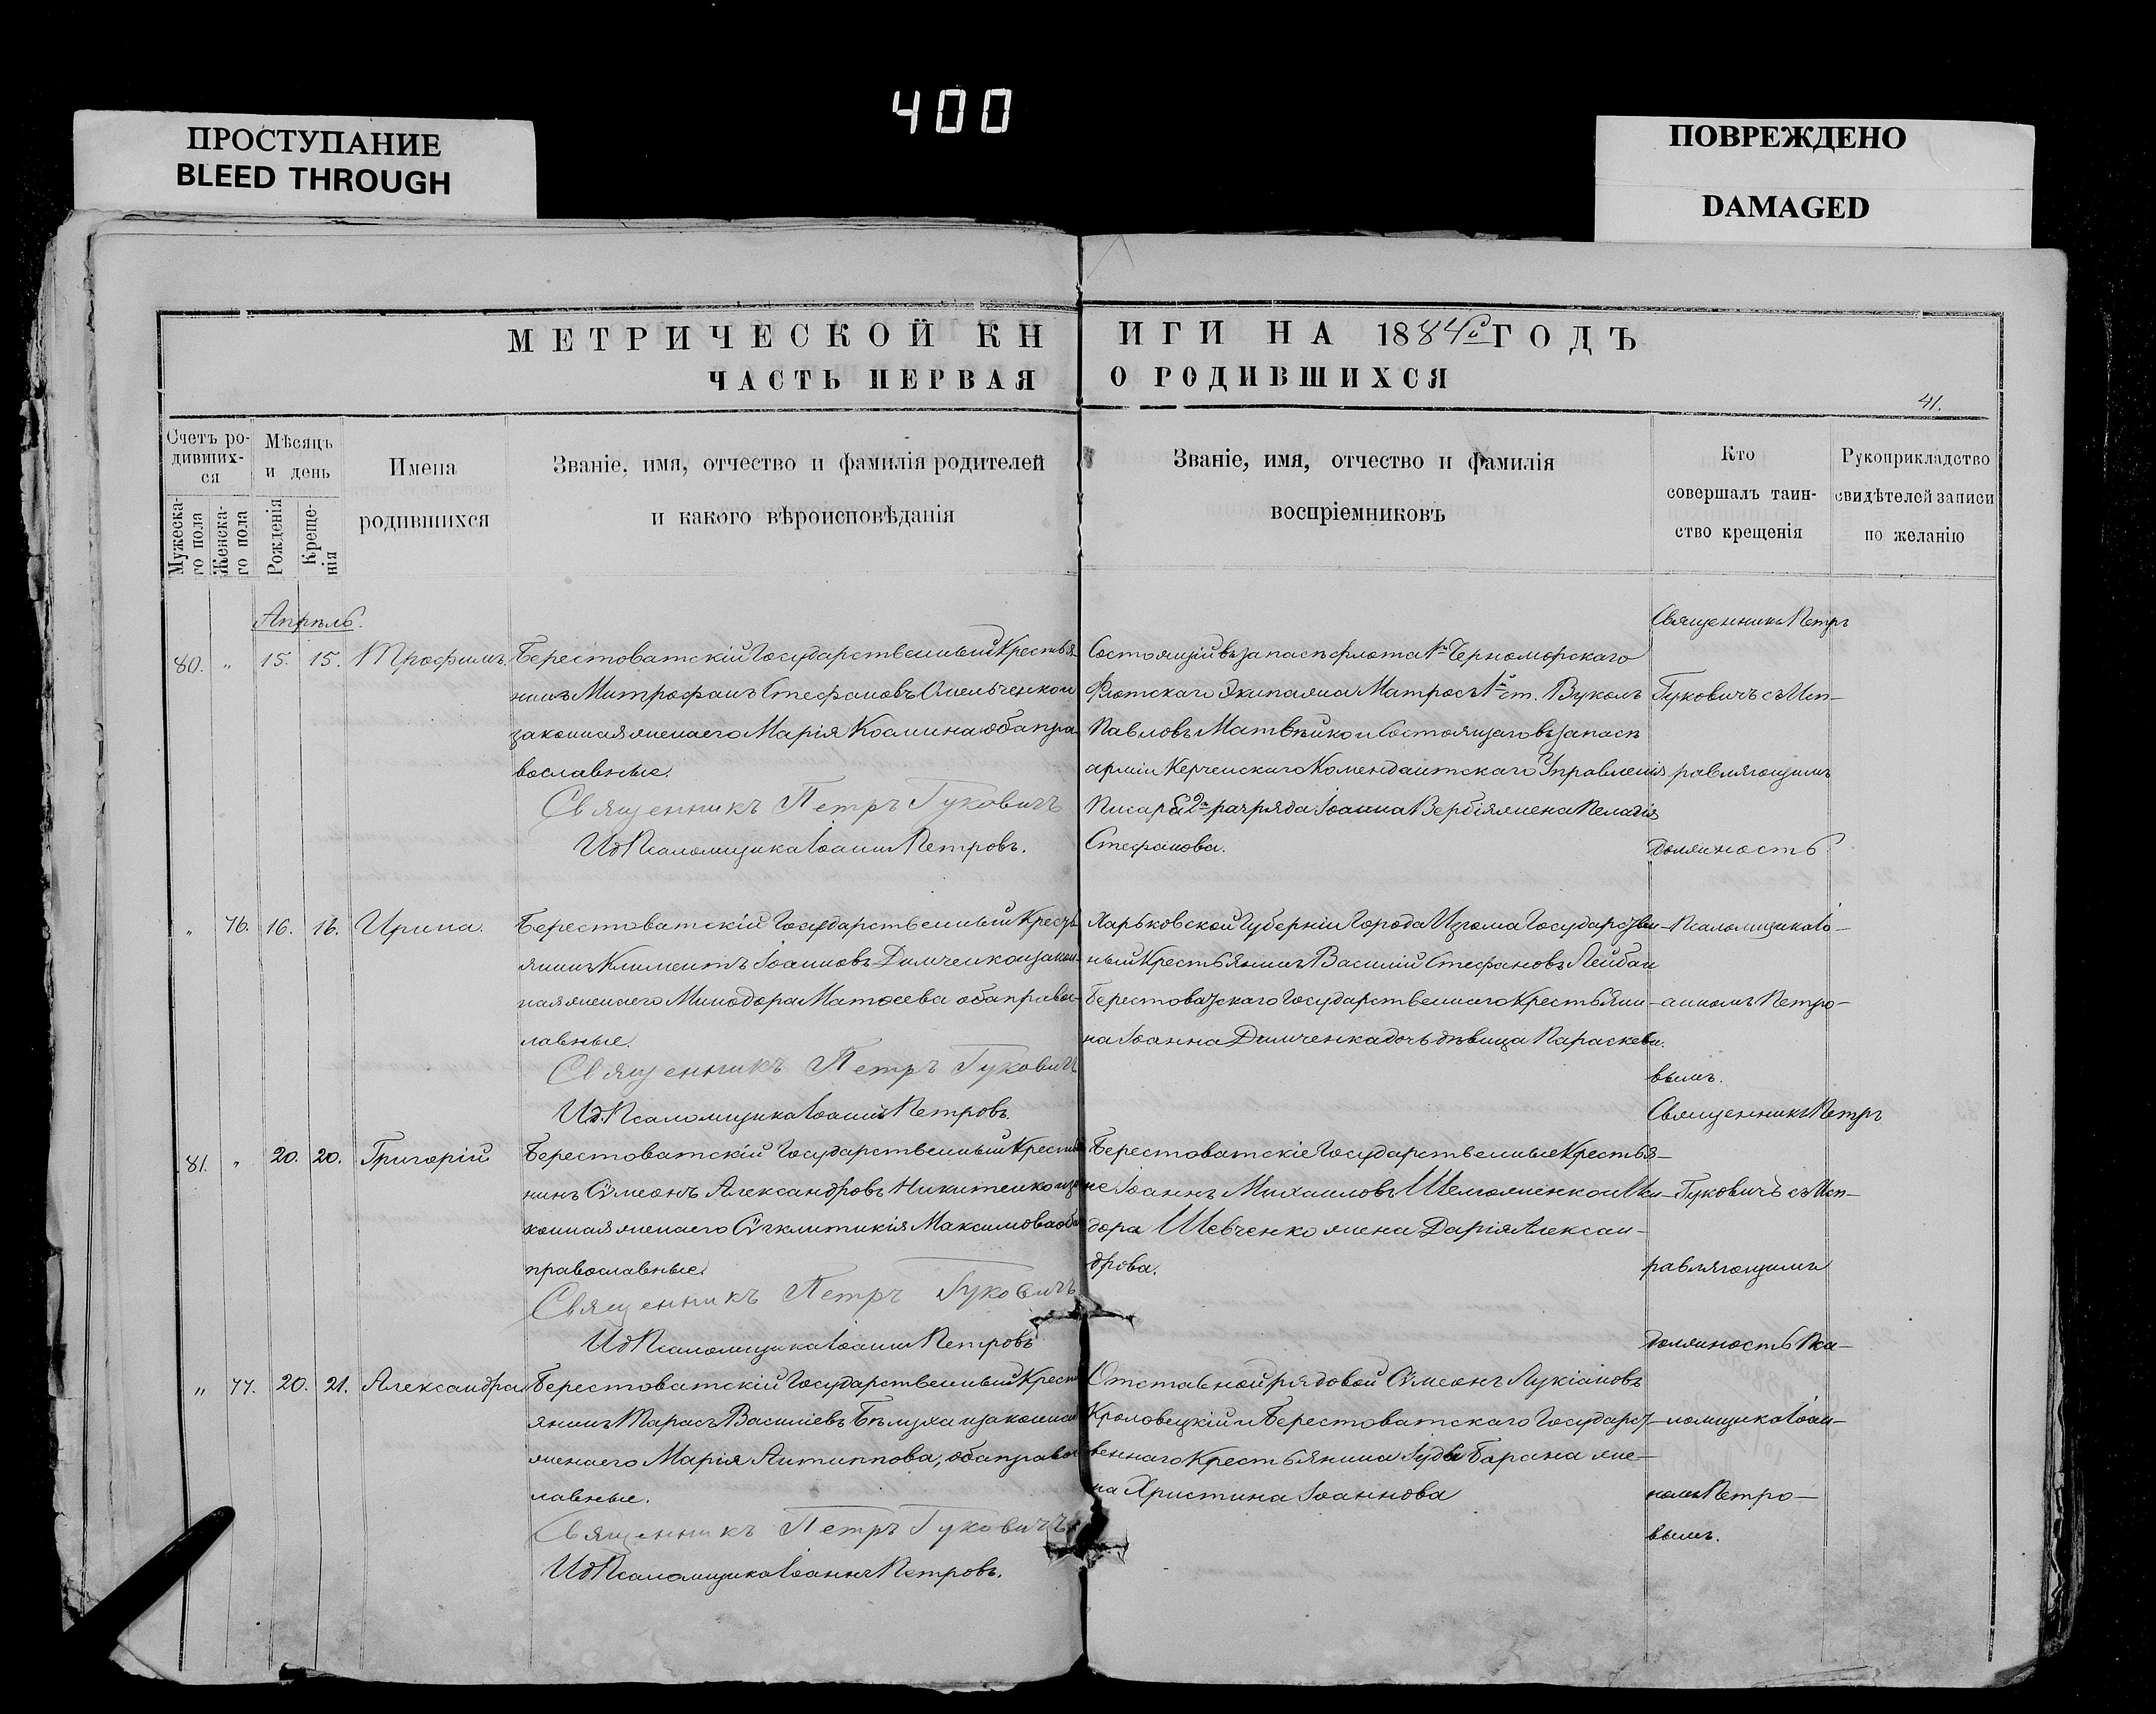 400
ПРОСТУПАНИЕ
BLEED THROUGH
ПОВРЕЖДЕНО
DAMAGED
МЕТРИЧЕСКОЙ КНИГИ НА 1884й ГОДЪ
ЧАСТЬ ПЕРВАЯ О РОДИВШИХСЯ
41.
Счетъ ро-
дивших-
ся
Мужеска-
го пола
Женска-
го пола
Мѣсяцъ
и день
Рожденія
Креще-
нія
Имена
родившихся
Званіе, имя, отчество и фамилія родителей
и какого вѣроисповѣданія
Званіе, имя, отчество и фамилія
воспріемниковъ
Кто
совершалъ таин-
ство крещенія
Рукоприкладство
свидѣтелей записи
по желанію
Апрѣль.
80. " 15. 15. Трофимъ.
Берестоватскій Государственный Крестья-
нинъ Митрофанъ Стефановъ Омельченко и
законная жена его Марія Космина оба пра-
вославные.
Священникъ Петръ Гуковичъ
Ид Псаломщика Іоаннъ Петровъ.
Состоящій въ запасѣ флота 1го Черноморскаго
Флотскаго Экипажа Матросъ 1й ст. Вуколъ
Павловъ Матвѣйко и Состоящаго въ запасѣ
арміи Керченскаго Комендантскаго Управленія
Писаря 2го разряда Іоанна Вербія жена Пелагія
Стефанова.
Священникъ Петръ
Гуковичъ съ Исп-
равляющимъ
должность
" 76. 16. 16. Ирина.
Берестоватскій Государственный Кресть
янинъ Климентъ Іоанновъ Димченко и закон-
ная жена его Минодора Матѳеева оба правос-
лавные.
Священникъ Петръ Гуковичъ
Ид Псаломщика Іоаннъ Петровъ.
Харьковской Губерніи Города Изюма Государствен-
ный Крестьянинъ Василій Стефановъ Лейбан
Берестоватскаго Государственнаго Крестьяни-
на Іоанна Димченка дочь дѣвица Параскева.
Псаломщика Іо-
анномъ Петро-
вымъ.
81. " 20. 20. Григорій
Берестоватскій Государственный Крестья
нинъ Сѵмеонъ Александровъ Никитенко и за
конная жена его Сѵгклитикія Максимова оба
православные.
Священникъ Петръ Гуковичъ
Ид Псаломщика Іоаннъ Петровъ
Берестоватскіе Государственные Крестья-
не Іоаннъ Михаиловъ
дора Шевченко жена Дарія Алексан-
дрова.
Священникъ Петръ
Гуковичъ съ Исп-
равляющимъ
должность Пса-
" 77. 20. 21. Александра
Берестоватскій Государственный Кресть
янинъ Тарасъ Василіевъ Бѣлуха и законная
жена его Марія Антиппова, оба правос
лавные.
Священникъ Петръ Гуковичъ
Ид Псаломщика Іоаннъ Петровъ.
Отставной рядовой Сѵмеонъ Лукіановъ
Кроловецкій и Берестоватскаго Государст-
веннаго Крестьянина Іуды Барана же-
на Христина Іоаннова
ломщика Іоан-
номъ Петро-
вымъ.